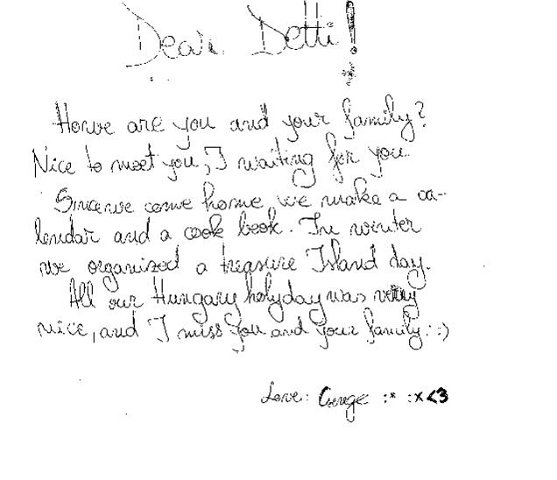 Dear Detti!
Howe are you and your family?
Nice to meet you, I waiting for you.
Since we come home, we make a ca-
lendar and a cook book. In winter
we organised a treasure Island day.
All our Hungary holyday was very
nice, and I miss you and your family. :)
Love: George :* :x <3